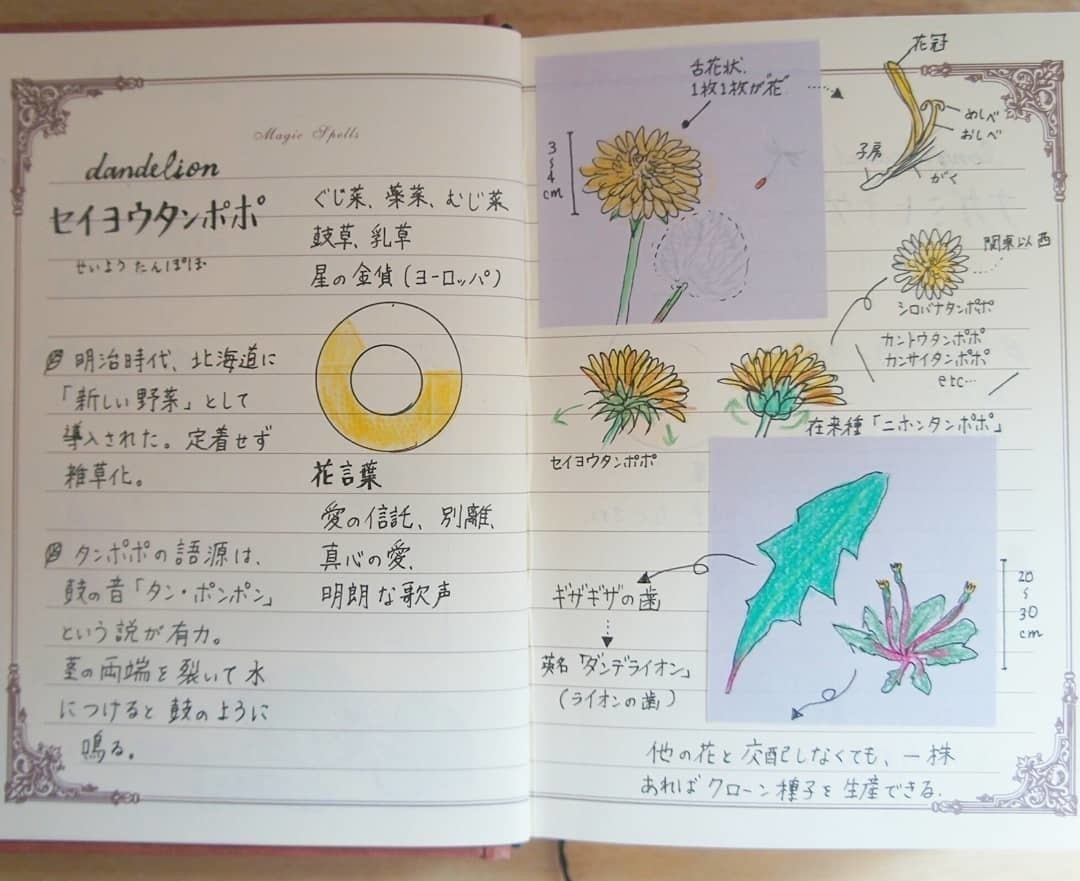 Magic Spells
dandelion
セイヨウタンポポ
せいようたんぽぽ
ぐじ菜、薬菜、むじ菜
鼓草、乳草
星の金貨(ヨーロッパ)
明治時代、北海道に
「新しい野菜」として
導入された。定着せず
雑草化。
タンポポの語源は、
鼓の音「タン・ポンポン」
という説が有力。
茎の両端を裂いて水
につけると鼓のように
鳴る。
花言葉
愛の信託、別離、
真心の愛、
明朗な歌声
舌花状.
1枚1枚が花
3〜4cm
花冠
めしべ
おしべ
子房
がく
関東以西
シロバナタンポポ
カントウタンポポ
カンサイタンポポ
etc…
在来種「ニホンタンポポ」
セイヨウタンポポ
ギザギザの歯
英名「ダンデライオン」
(ライオンの歯)
20〜30cm
他の花と交配しなくても、一株
あればクローン種子を生産できる.